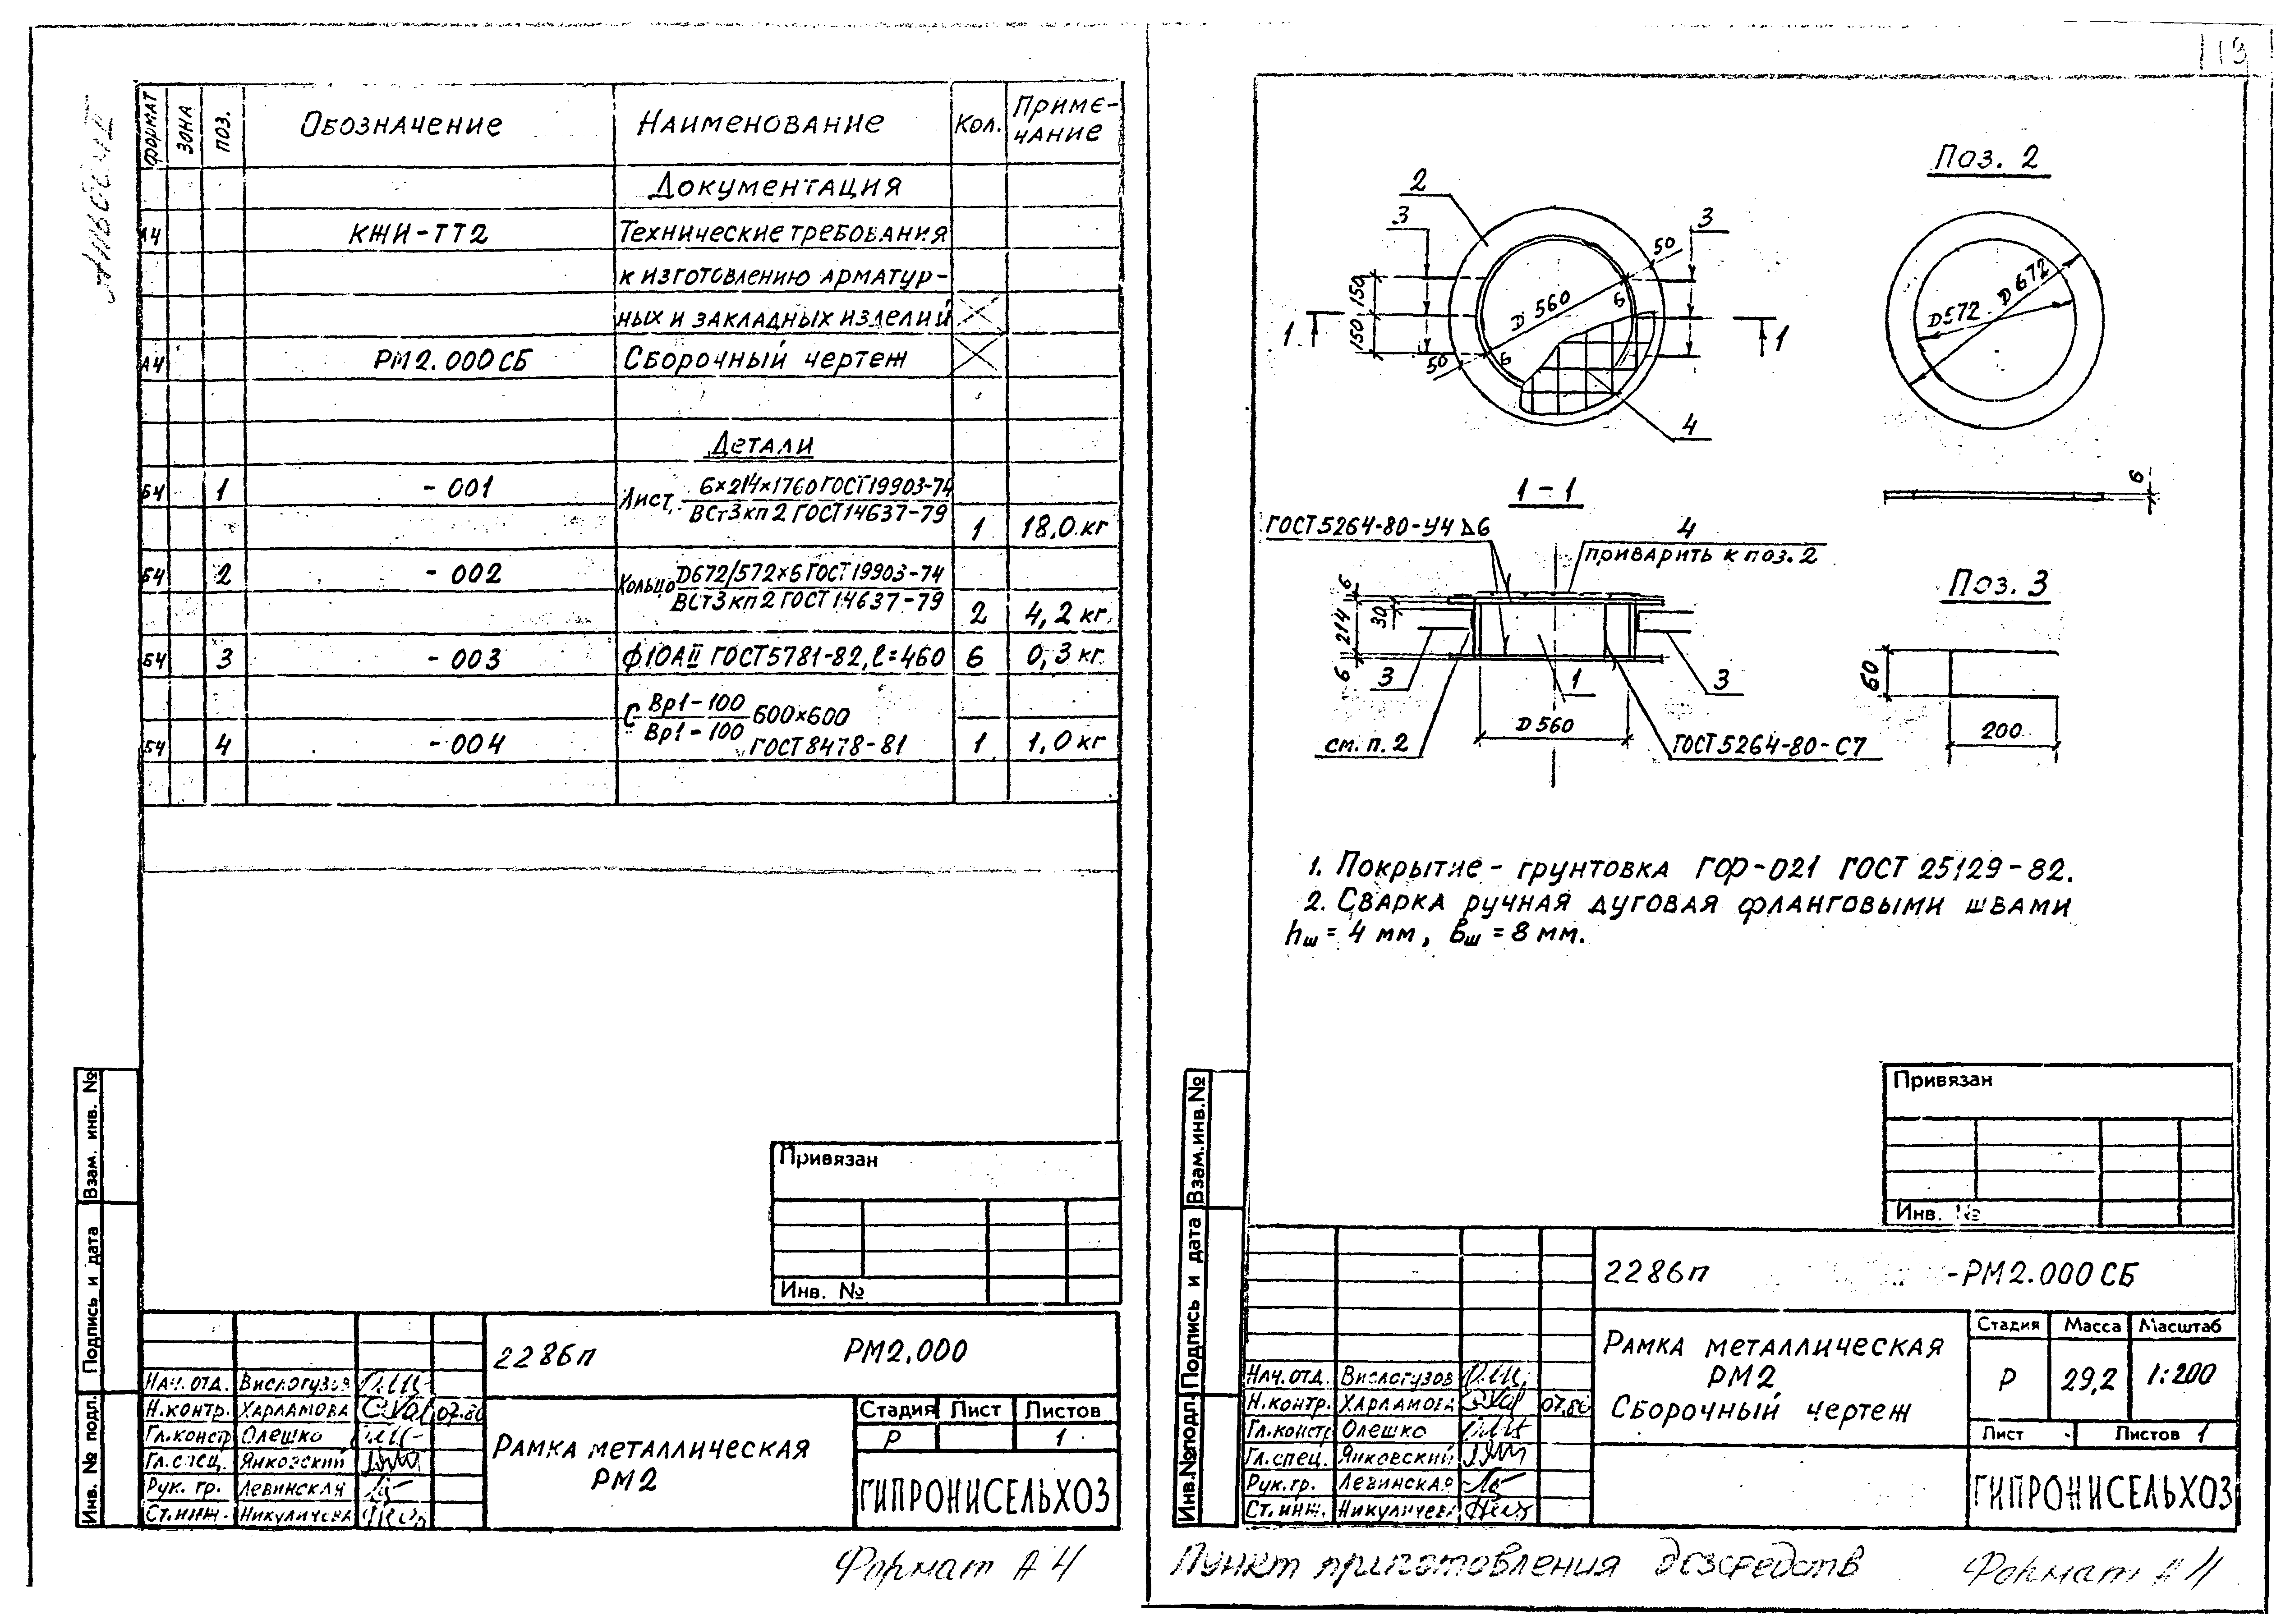 19
Альбом II
ФОРМАТ ЗОНА ПОЗ. Обозначение Наименование Кол. Приме-
чание
Документация
А4 КЖИ-ТТ2 Технические требования
к изготовлению арматур-
ных и закладных изделий
А4 РМ2.000СБ Сборочный чертеж
Детали
Б4 1 -001 Лист 6×214×1760 ГОСТ 19903-74
ВСт3кп2 ГОСТ 14637-79
1 18,0 кг
Б4 2 -002 Кольцо D672/572×6 ГОСТ 19903-74
ВСт3кп2 ГОСТ 14637-79
2 4,2 кг
Б4 3 -003 ф10АII ГОСТ 5781-82, ℓ=460 6 0,3 кг
С Вр1-100 600×600
Вр1-100
Б4 4 -004 ГОСТ 8478-81 1 1,0 кг
Привязан
Инв. №
Взам. инв. №
Подпись и дата
Инв. № подл.
2286п РМ2.000
Нач. отд. Вислогузов
Н.контр. Харламова 07.86
Гл.констр Олешко
Гл. спец. Янковский
Рук. гр. Левинская
Ст. инж. Никуличева
Рамка металлическая
РМ2
Стадия Лист Листов
Р 1
ГИПРОНИСЕЛЬХОЗ
Формат А4
Поз. 2
2
3 3
50
150
150
D 560
6
6
50
1 1
4
D572
D672
6
1-1
ГОСТ 5264-80-У4 Δ6
4
приварить к поз. 2
6
214
6
30
3 1 3
D 560
см. п. 2
ГОСТ 5264-80-С7
Поз. 3
60
200
1. Покрытие - грунтовка ГФ-021 ГОСТ 25129-82.
2. Сварка ручная дуговая фланговыми швами
hш = 4 мм, bш = 8 мм.
Привязан
Инв. №
Взам.инв.№
Подпись и дата
Инв.№подл.
2286п -РМ2.000СБ
Нач. отд. Вислогузов
Н.контр. Харламова 07.86
Гл.констр Олешко
Гл.спец. Янковский
Рук.гр. Левинская
Ст. инж. Никуличева
Рамка металлическая
РМ2
Сборочный чертеж
Стадия Масса Масштаб
Р 29,2 1:200
Лист Листов 1
ГИПРОНИСЕЛЬХОЗ
Пункт приготовления дезсредств
Формат А4